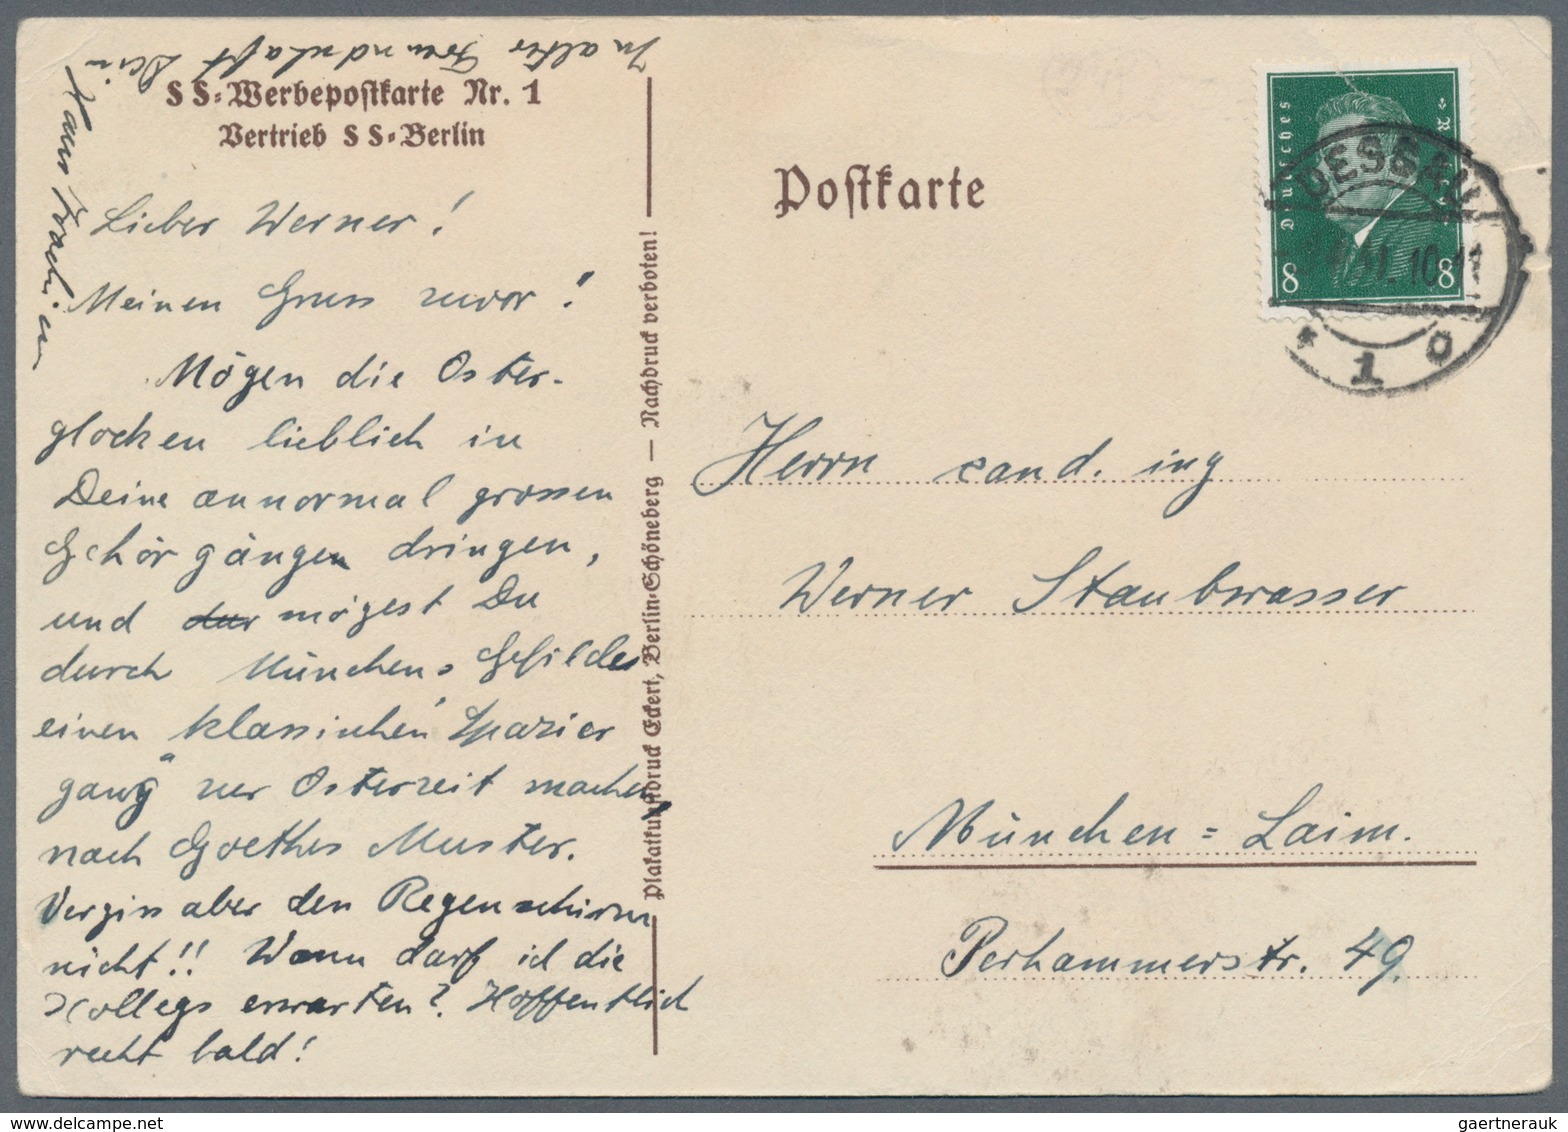 In alter Freundschaft Dein
Hans Joachim
SS-Werbepostkarte Nr. 1
Vertrieb SS-Berlin
Lieber Werner!
Meinen Gruss zuvor!
Mögen die Oster-
glocken lieblich in
Deine annormal grossen
Gehörgänge dringen,
und dur mögest Du
durch Münchens Gefilde
einen "klassischen Spazier
gang" zur Osterzeit machen
nach Goethes Muster.
Vergiss aber den Regenschirm
nicht!! Wann darf ich die
Kollegs erwarten? Hoffentlich
recht bald!
Plakatkunstdruck Eckert, Berlin-Schöneberg — Nachdruck verboten!
Postkarte
Deutsches
8 8
DESSAU
* 1 o
Herrn cand. ing
Werner Staubwasser
München=Laim.
Perhammerstr. 49.
gaertnerauk